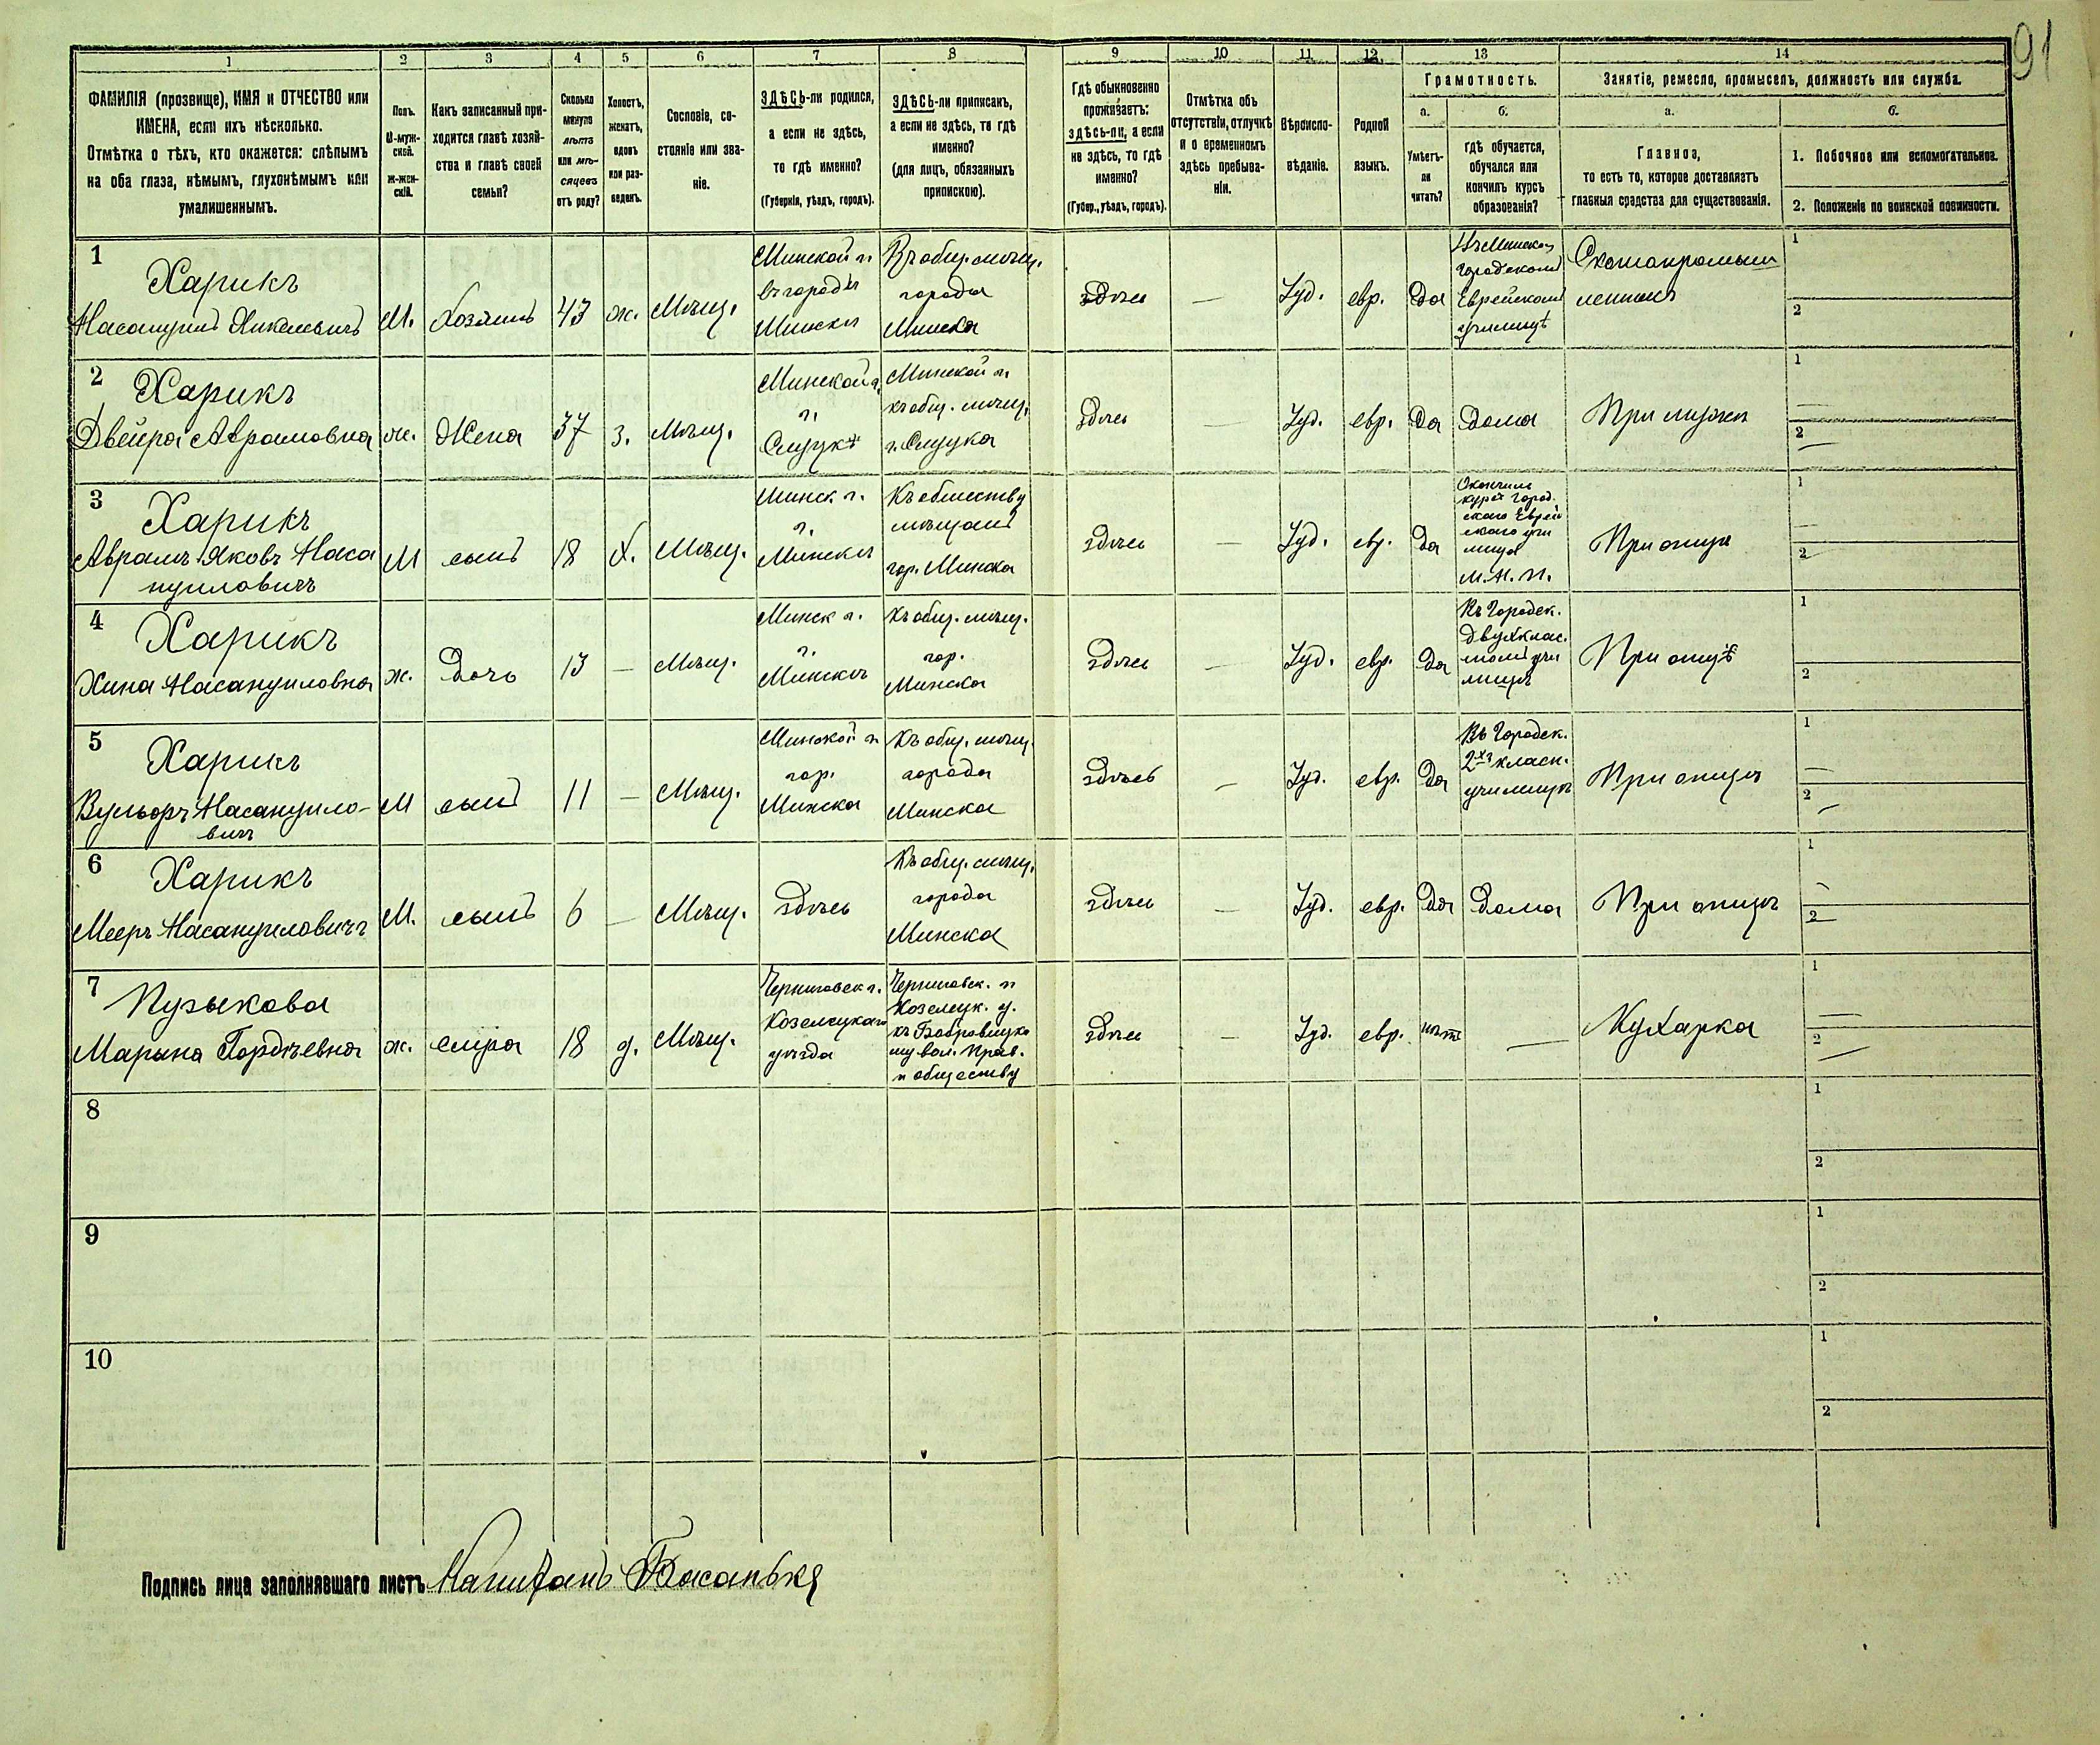 91
1 2 3 4 5 6 7 8 9 10 11 12 13 14
ФАМИЛІЯ (прозвище), ИМЯ и ОТЧЕСТВО или
ИМЕНА, если ихъ нѣсколько.
Отмѣтка о тѣхъ, кто окажется: слѣпымъ
на оба глаза, нѣмымъ, глухонѣмымъ или
умалишеннымъ.
Полъ.
М-муж-
ской.
ж-жен-
скій.
Какъ записанный при-
ходится главѣ хозяй-
ства и главѣ своей
семьи?
Сколько
минуло
лѣтъ
или мѣ-
сяцевъ
отъ роду?
Холостъ,
женатъ,
вдовъ
или раз-
веденъ.
Сословіе, со-
стояніе или зва-
ніе.
ЗДѢСЬ-ли родился,
а если не здѣсь,
то гдѣ именно?
(Губернія, уѣздъ, городъ).
ЗДѢСЬ-ли приписанъ,
а если не здѣсь, то гдѣ
именно?
(для лицъ, обязанныхъ
припискою).
Гдѣ обыкновенно
проживаетъ:
здѣсь-ли, а если
не здѣсь, то гдѣ
именно?
(Губер., уѣздъ, городъ).
Отмѣтка объ
отсутствіи, отлучкѣ
и о временномъ
здѣсь пребыва-
ніи.
Вѣроиспо-
вѣданіе.
Родной
языкъ.
Грамотность.
а.
Умѣетъ-
ли
читать?
б.
гдѣ обучается,
обучался или
кончилъ курсъ
образованія?
Занятіе, ремесло, промыселъ, должность или служба.
а.
Главное,
то есть то, которое доставляетъ
главныя средства для существованія.
б.
1. Побочное или вспомогательное.
2. Положеніе по воинской повинности.
1
Харикъ
М.
Хозяинъ
43
ж.
Мѣщ.
Минской г.
въ городѣ
Минскѣ
Къ общ. мѣщ.
города
Минска
здѣсь
—
Іуд.
евр.
Да
Городском
Еврейском
училищѣ
Скотопромыш
ленникъ
1
2
2
Харикъ
Двейра Абрамовна
ж.
Жена
37
з.
Мѣщ.
Минской г.
г.
Слуцкѣ
Минской г.
къ общ. мѣщ.
г. Слуцка
здѣсь
—
Іуд.
евр.
Да
Дома
При мужѣ
1
2
3
Харикъ
Абрамъ-Яковъ Наса
нуиловичъ
М
сынъ
18
Х.
Мѣщ.
Минск г.
г.
Минскѣ
Къ обществу
мѣщанъ
гор. Минска
здѣсь
—
Іуд.
евр.
Да
Окончилъ
курсъ Город.
скаго Еврей
скаго учи
лища
М.Н.П.
При отцѣ
1
2
4
Харикъ
Хина Насануиловна
ж.
Дочь
13
—
Мѣщ.
Минск г.
г.
Минскѣ
Къ общ. мѣщ.
гор.
Минска
здѣсь
—
Іуд.
евр.
Да
Въ Городск.
двухклас.
номъ учи
лищѣ
При отцѣ
1
2
5
Харикъ
Вульфъ Насануило-
вичъ
М
сынъ
11
—
Мѣщ.
Минской г.
гор.
Минска
Къ общ. мѣщ.
города
Минска
здѣсь
—
Іуд.
евр.
Да
Въ Городск.
2хъ класн.
училищѣ
При отцѣ
1
2
6
Харикъ
Мееръ Насануиловичъ
М.
сынъ
6
—
Мѣщ.
здѣсь
Къ общ. мѣщ.
города
Минска
здѣсь
—
Іуд.
евр.
Да
Дома
При отцѣ
1
2
7
Пузыкова
Марьяна Гордѣевна
ж.
18
д.
Мѣщ.
Черниговск г.
Козелецкаго
уѣзда
Черниговск. г.
Козелецк. у.
къ Бобровицко
му вол. Прав.
и обществу
здѣсь
—
Іуд.
евр.
нѣтъ
—
Кухарка
1
2
8
1
2
9
1
2
10
1
2
Подпись лица заполнявшаго листъ